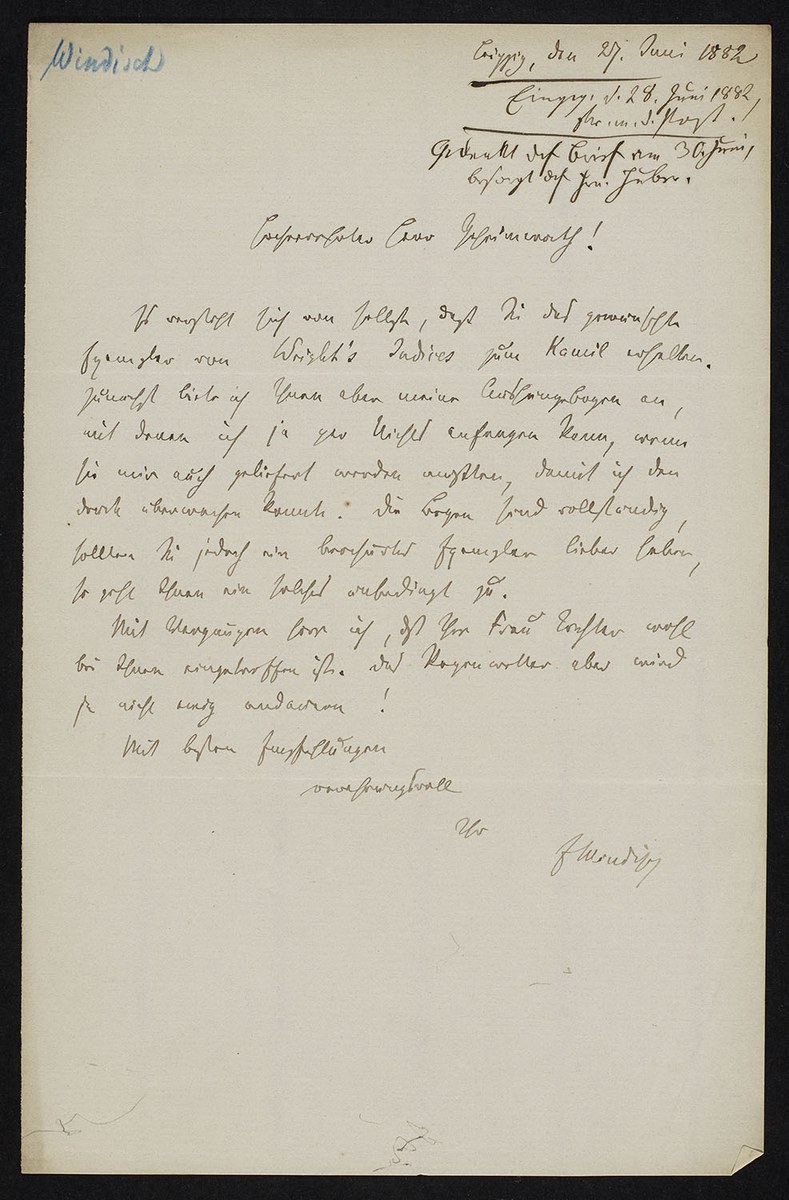 Windisch
Leipzig, den 27. Juni 1882
Eingeg. d. 28. Juni 1882,
d. Post.
Gedankt dch Brief am 30. Juni,
besorgt dch Hrn. Huber.
Hochverehrter Herr Geheimrath!
Es versteht sich von selbst, daß Sie das gewünschte
Exemplar von Wright's Indices zum Kamil erhalten.
Zunächst biete ich Ihnen aber meine Aushängebogen an,
mit denen ich ja gar Nichts anfangen kann, wenn
sie mir auch geliefert werden mußten, damit ich den
Druck überwachen konnte. Die Bogen sind vollständig,
sollten Sie jedoch ein broschirtes Exemplar lieber haben,
so geht Ihnen ein solches unbedingt zu.
Mit Vergnügen höre ich, dß Ihre Frau Tochter wohl
bei Ihnen eingetroffen ist. Das Regenwetter aber wird
ja nicht ewig andauern!
Mit besten Empfehlungen
verehrungsvoll
Ihr
EWindisch